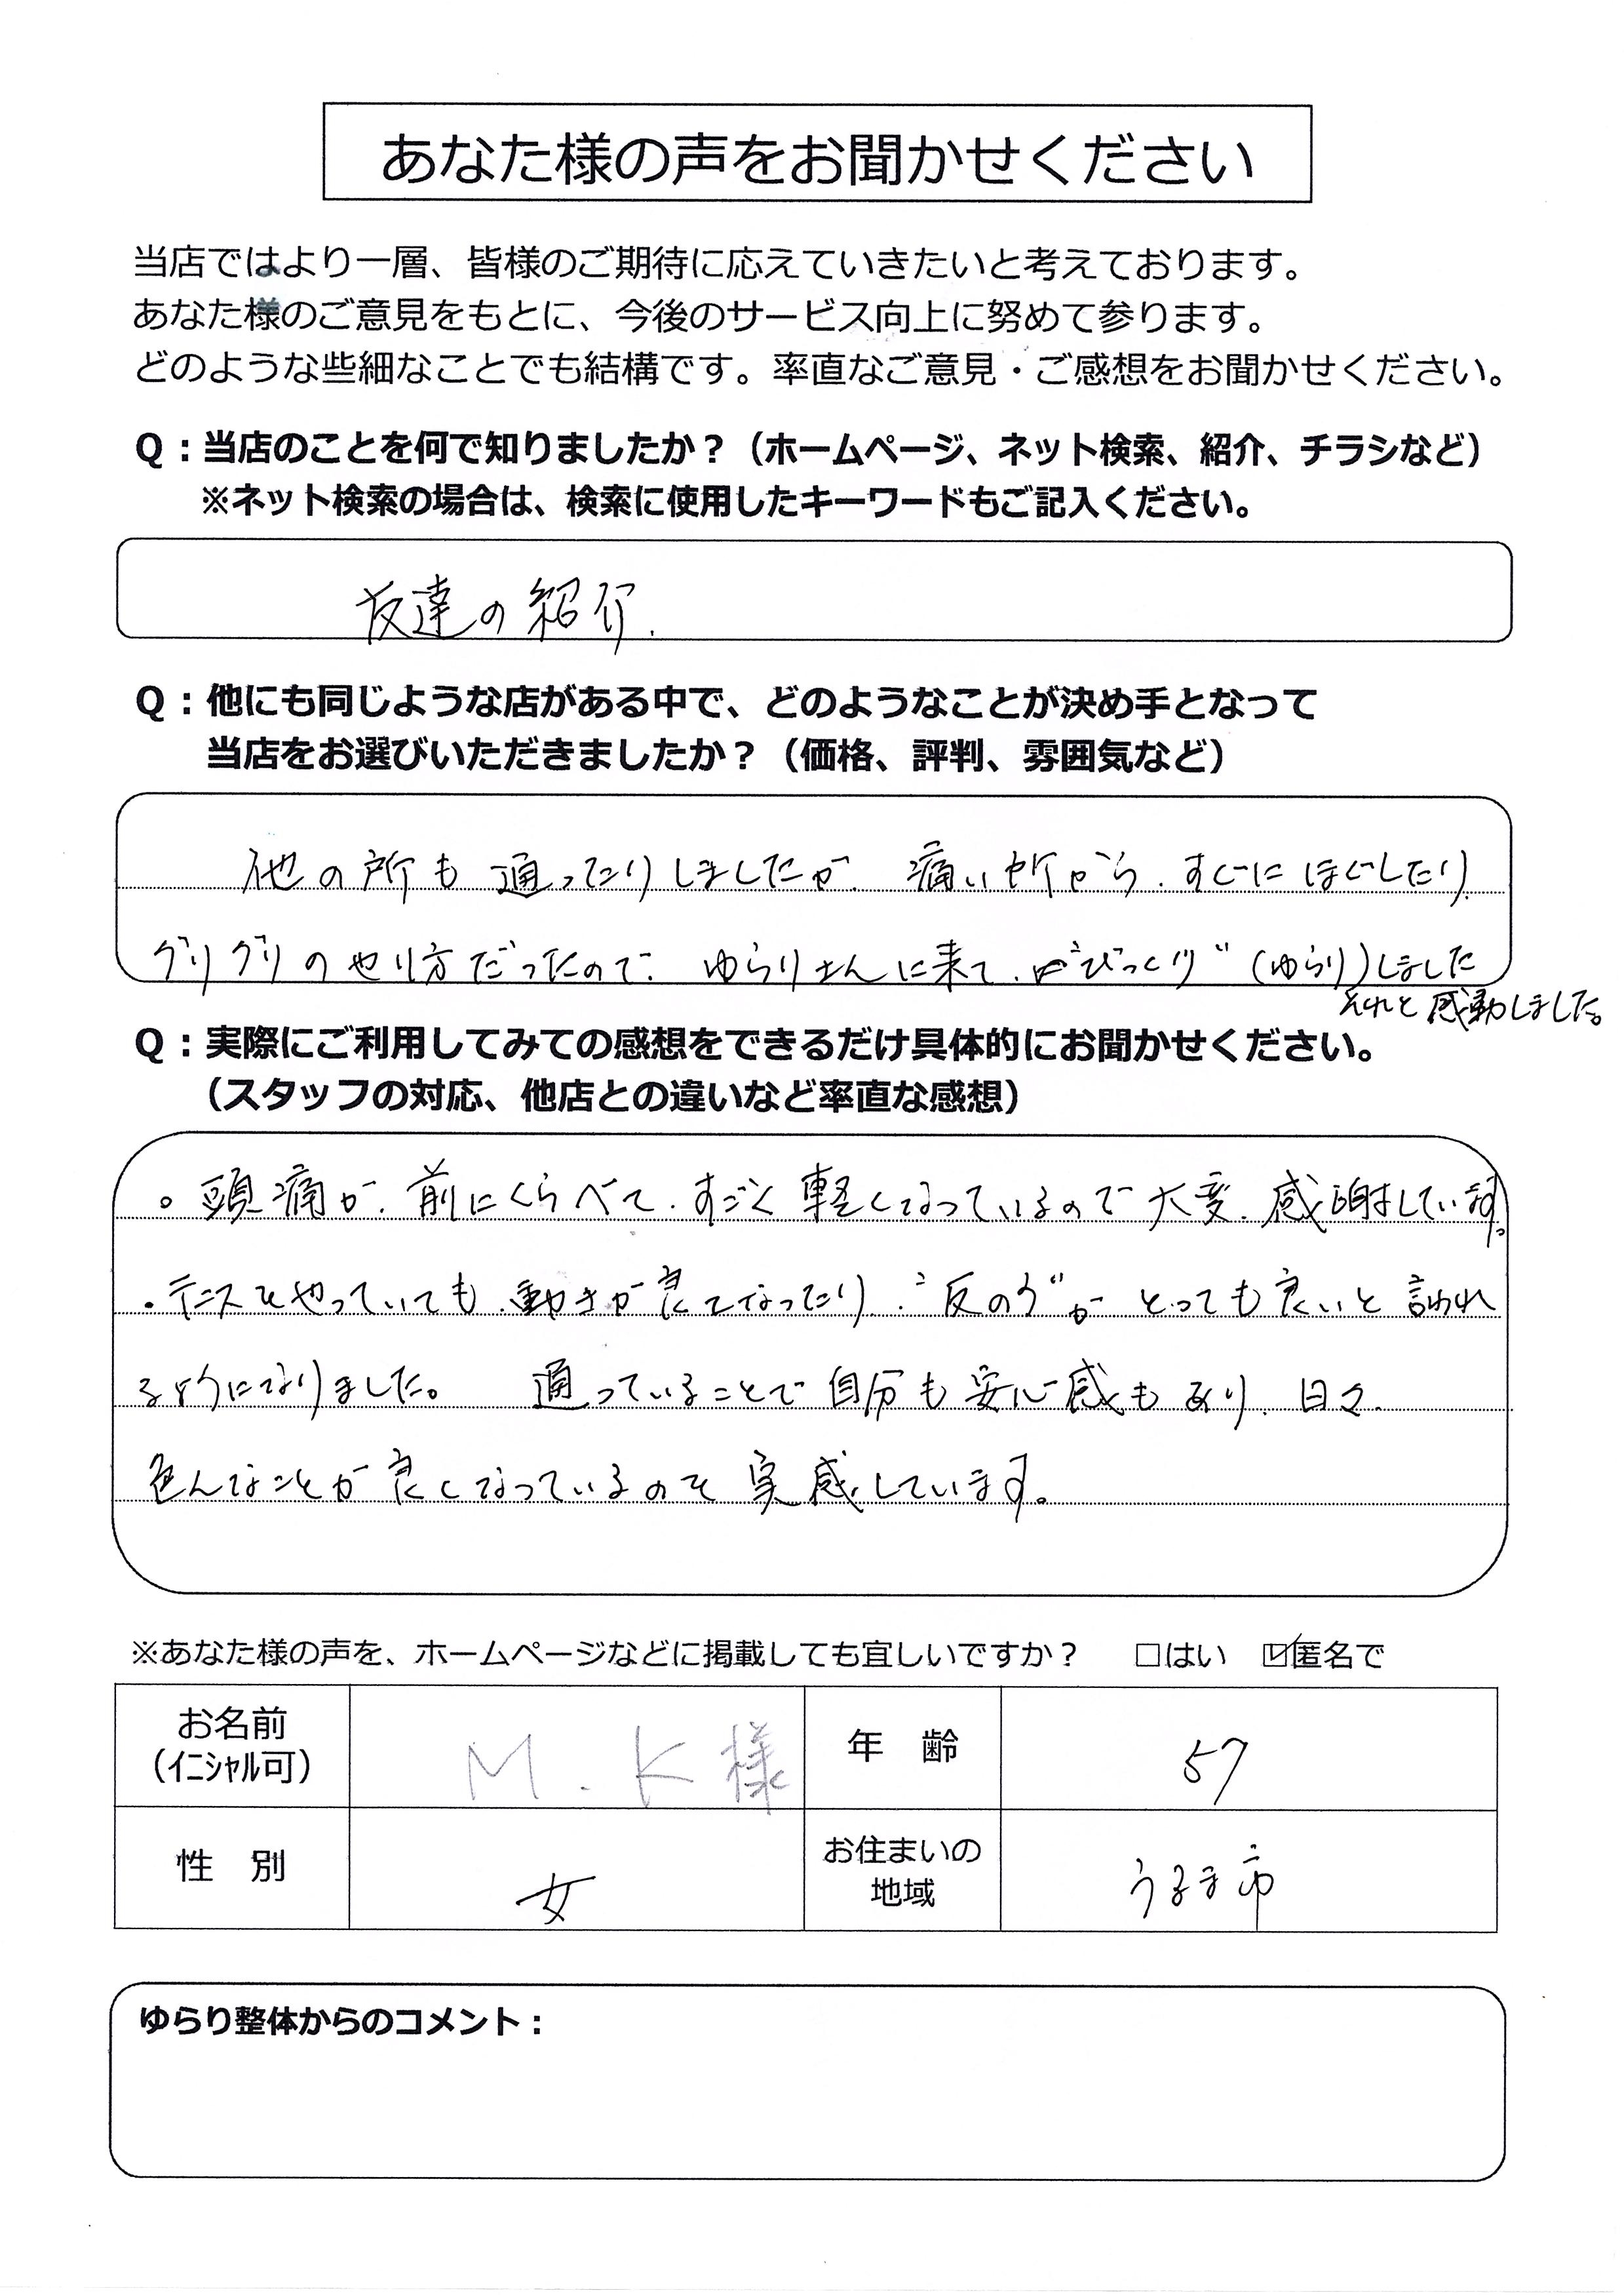 あなた様の声をお聞かせください
当店ではより一層、皆様のご期待に応えていきたいと考えております。
あなた様のご意見をもとに、今後のサービス向上に努めて参ります。
どのような些細なことでも結構です。率直なご意見・ご感想をお聞かせください。
Q：当店のことを何で知りましたか？（ホームページ、ネット検索、紹介、チラシなど）
※ネット検索の場合は、検索に使用したキーワードもご記入ください。
友達の紹介.
Q：他にも同じような店がある中で、どのようなことが決め手となって
当店をお選びいただきましたか？（価格、評判、雰囲気など）
他の所も通ったりしましたが、痛い所から、すぐにほぐしたり、
グリグリのやり方だったので、ゆらりさんに来て、"びっくり"（ゆらり）しました
それと感動しました。
Q：実際にご利用してみての感想をできるだけ具体的にお聞かせください。
（スタッフの対応、他店との違いなど率直な感想）
。頭痛が、前にくらべて、すごく軽くなっているので大変、感謝しています。
・テニスをやっていても、動きが良くなったり、"反のう"がとっても良いと言われ
るようになりました。 通っていることで自分も安心感もあり、日々、
色んなことが良くなっているのを実感しています。
※あなた様の声を、ホームページなどに掲載しても宜しいですか？ □はい ☑匿名で
お名前
（ｲﾆｼｬﾙ可）
M.K様
年 齢
57
性 別
女
お住まいの
地域
うるま市
ゆらり整体からのコメント：